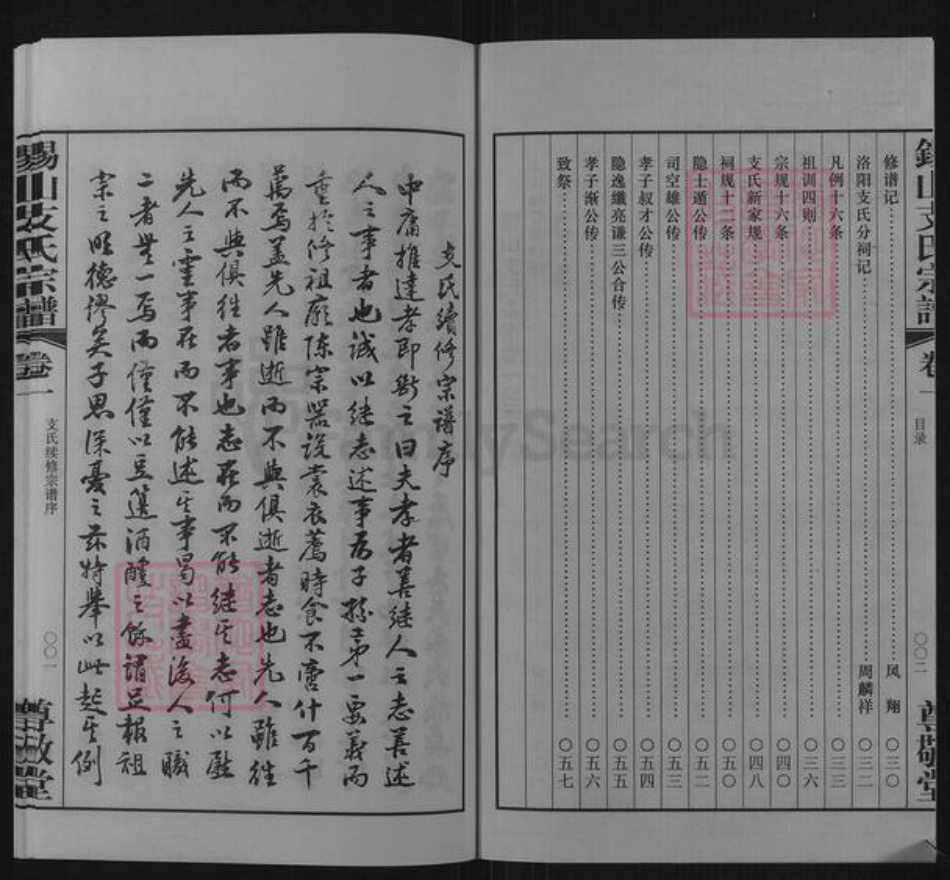 锡山支氏宗谱
卷一
目录
〇〇二
尊敬堂
修谱记 凤翔 〇三〇
洛阳支氏分祠记 周麟祥 〇三二
凡例十六条 〇三三
祖训四则 〇三六
宗规十六条 〇四〇
支氏新家规 〇四八
祠规十二条 〇五〇
隐士遁公传 〇五二
司空雄公传 〇五三
孝子叔才公传 〇五四
隐逸纖亮谦三公合传 〇五五
孝子渐公传 〇五六
致祭 〇五七
支氏續修宗譜序
中庸推達孝即斷之曰夫孝者善继人之志善述
人之事者也誠以继志述事為子孫第一要義而
重於修祖廟陈宗器設裳衣薦時食不啻什百千
萬焉盖先人雖逝而不與俱逝者志也先人雖往
而不與俱往者事也志在而不能继其志何以慰
先人之靈事在而不能述其事曷以盡後人之職
二者無一焉而僅僅以豆籩酒醴之餘謂足報祖
宗之明德謬矣子思深憂之茲特舉以此起其例
锡山支氏宗譜
卷一
支氏续修宗谱序
〇〇一
尊敬堂
FamilySearch